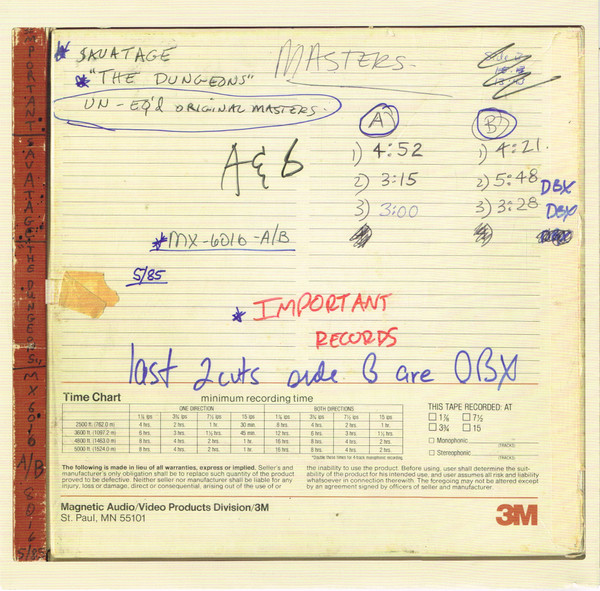 * SAVATAGE
* "THE DUNGEONS"
MASTERS-
UN-EQ'd ORIGINAL MASTERS.
A & b
A
1) 4:52
2) 3:15
3) 3:00
B
1) 4:21.
2) 5:48 DBX
3) 3:28 DBX
* MX-6016-A/B
5/85
* IMPORTANT
RECORDS
last 2 cuts side B are DBX
Time Chart minimum recording time
ONE DIRECTION BOTH DIRECTIONS
1⅞ ips 3¾ ips 7½ ips 15 ips 1⅞ ips 3¾ ips 7½ ips 15 ips
2500 ft. (762.0 m) 4 hrs. 2 hrs. 1 hr. 30 min. 8 hrs. 4 hrs. 2 hrs. 1 hr.
3600 ft. (1097.2 m) 6 hrs. 3 hrs. 1½ hrs. 45 min. 12 hrs. 6 hrs. 3 hrs. 1½ hrs.
4800 ft. (1463.0 m) 8 hrs. 4 hrs. 2 hrs. 1 hr. 16 hrs. 8 hrs. 4 hrs. 2 hrs.
5000 ft. (1524.0 m) 8 hrs. 4 hrs. 2 hrs. 1 hr. 16 hrs. 8 hrs. 4 hrs. 2 hrs.
*Double these times for 4-track monophonic recording.
THIS TAPE RECORDED: AT
☐ 1⅞ ☐ 7½
☐ 3¾ ☐ 15
☐ Monophonic
(TRACKS)
☐ Stereophonic
(TRACKS)
The following is made in lieu of all warranties, express or implied. Seller's and
manufacturer's only obligation shall be to replace such quantity of the product
proved to be defective. Neither seller nor manufacturer shall be liable for any
injury, loss or damage, direct or consequential, arising out of the use of or
the inability to use the product. Before using, user shall determine the suit-
ability of the product for his intended use, and user assumes all risk and liability
whatsoever in connection therewith. The foregoing may not be altered except
by an agreement signed by officers of seller and manufacturer.
Magnetic Audio/Video Products Division/3M
St. Paul, MN 55101
3M
IMPORTANT SAVATAGE "THE DUNGEONS" MX6016 A/B 8016 5/85